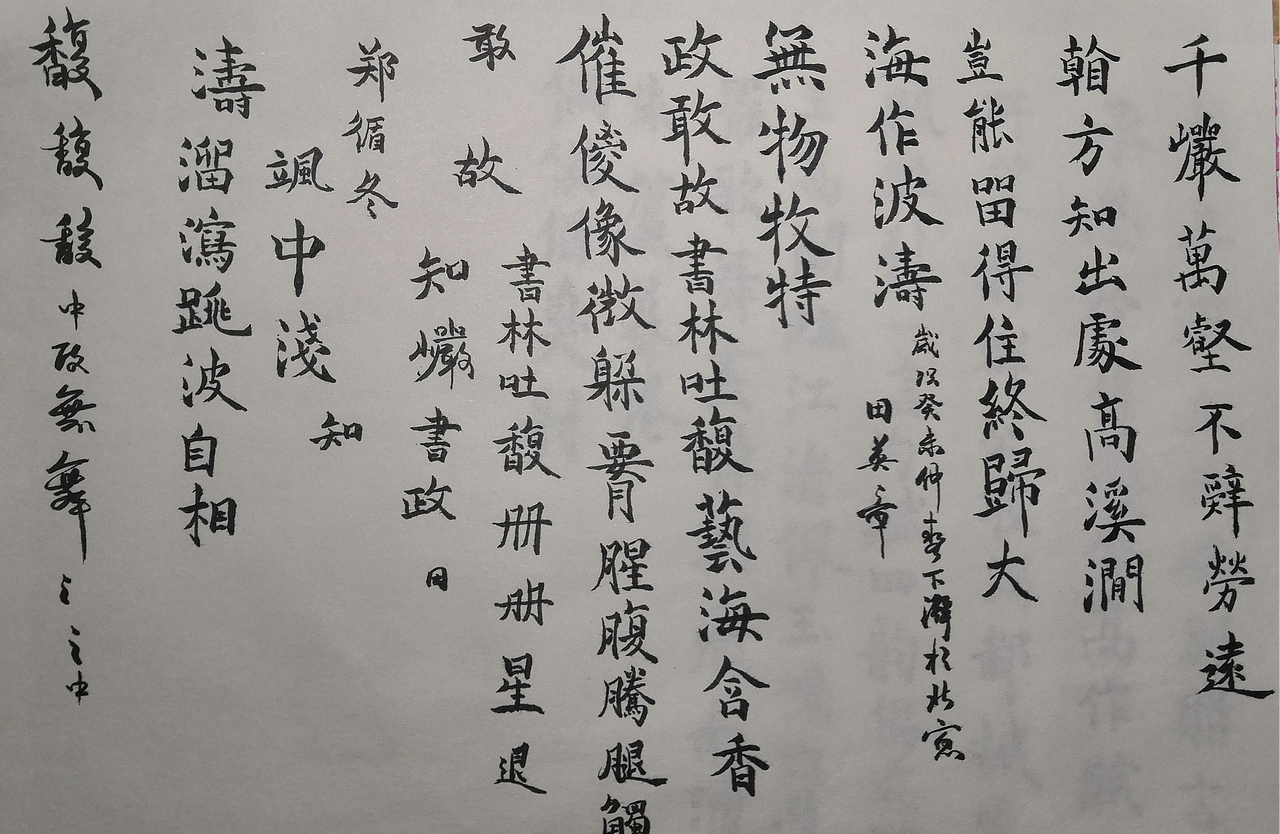 千巖萬壑不辭勞遠
看方知出處高溪澗
豈能畱得住終歸大
海作波濤
歲次癸未仲春下澣於北窓
田英章
無物牧特
政敢故書林吐馥藝海含香
催傻像微躲腥腹騰腿觸
敢故
書林吐馥册册星退
知巖書政日
郑循冬
颯中淺
知
濤溜瀉跳波自相
馥馥馥中政無舞之之中